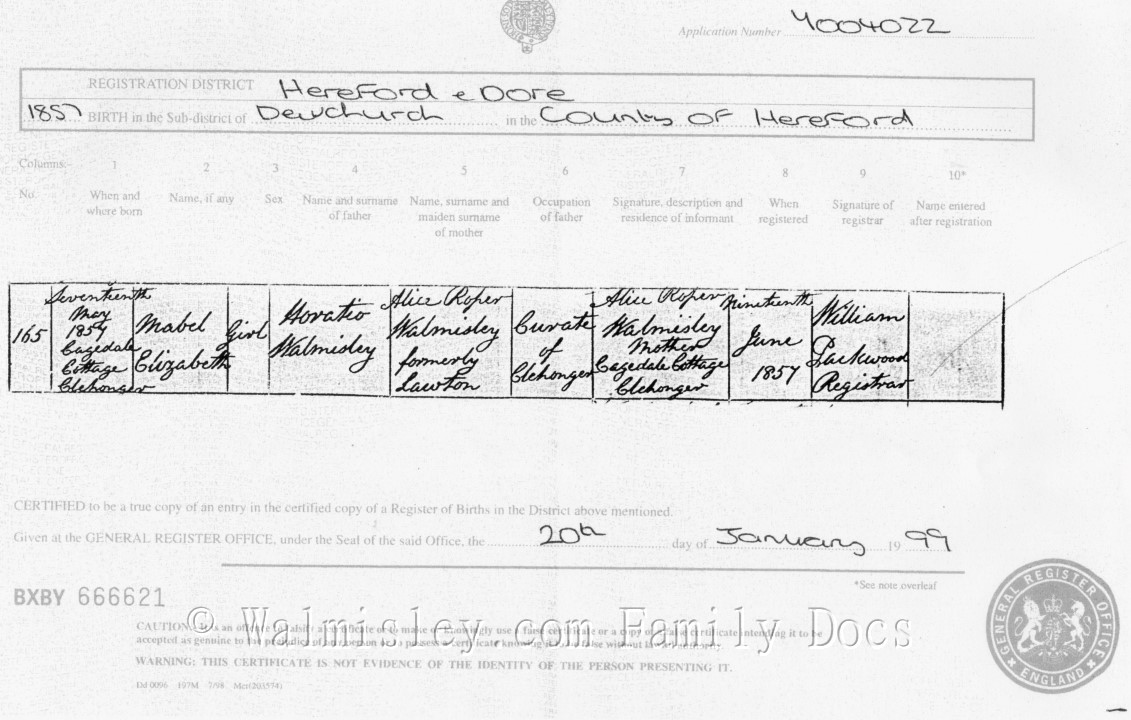 Application Number Y004022
REGISTRATION DISTRICT Hereford & Dore
1857 BIRTH in the Sub-district of Dewchurch in the County of Hereford
Columns:- 1 2 3 4 5 6 7 8 9 10*
No. When and where born Name, if any Sex Name and surname of father Name, surname and maiden surname of mother Occupation of father Signature, description and residence of informant When registered Signature of registrar Name entered after registration
165
Seventeenth
May
1857
Cagedale
Cottage
Clehonger
Mabel
Elizabeth
Girl
Horatio
Walmisley
Alice Roper
Walmisley
formerly
Lawton
Curate
of
Clehonger
Alice Roper
Walmisley
Mother
Cagedale Cottage
Clehonger
Nineteenth
June
1857
William
Packwood
Registrar
CERTIFIED to be a true copy of an entry in the certified copy of a Register of Births in the District above mentioned.
Given at the GENERAL REGISTER OFFICE, under the Seal of the said Office, the 20th day of January 1999
*See note overleaf
BXBY 666621
© Walmisley.com Family Docs
CAUTION: It is an offence to falsify a certificate or to make or knowingly use a false certificate or a copy of a false certificate intending it to be
accepted as genuine to the prejudice of any person or to possess a certificate knowing it to be false without lawful authority.
WARNING: THIS CERTIFICATE IS NOT EVIDENCE OF THE IDENTITY OF THE PERSON PRESENTING IT.
Dd 0096 197M 7/98 Mcr(203574)
GENERAL REGISTER OFFICE
ENGLAND